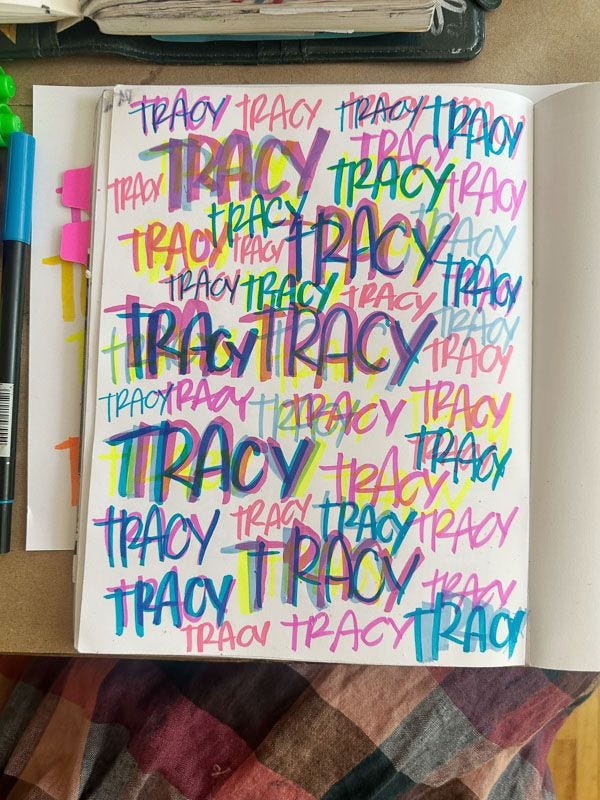 TRACY TRACY TRACY TRACY
TRACY TRACY
TRACY TRACY TRACY
TRACY TRACY TRACY
TRACY TRACY
TRACY TRACY TRACY TRACY
TRACY TRACY TRACY
TRACY
TRACY TRACY TRACY TRACY TRACY
TRACY TRACY TRACY
TRACY TRACY TRACY TRACY
TRACY TRACY TRACY
TRACY TRACY TRACY